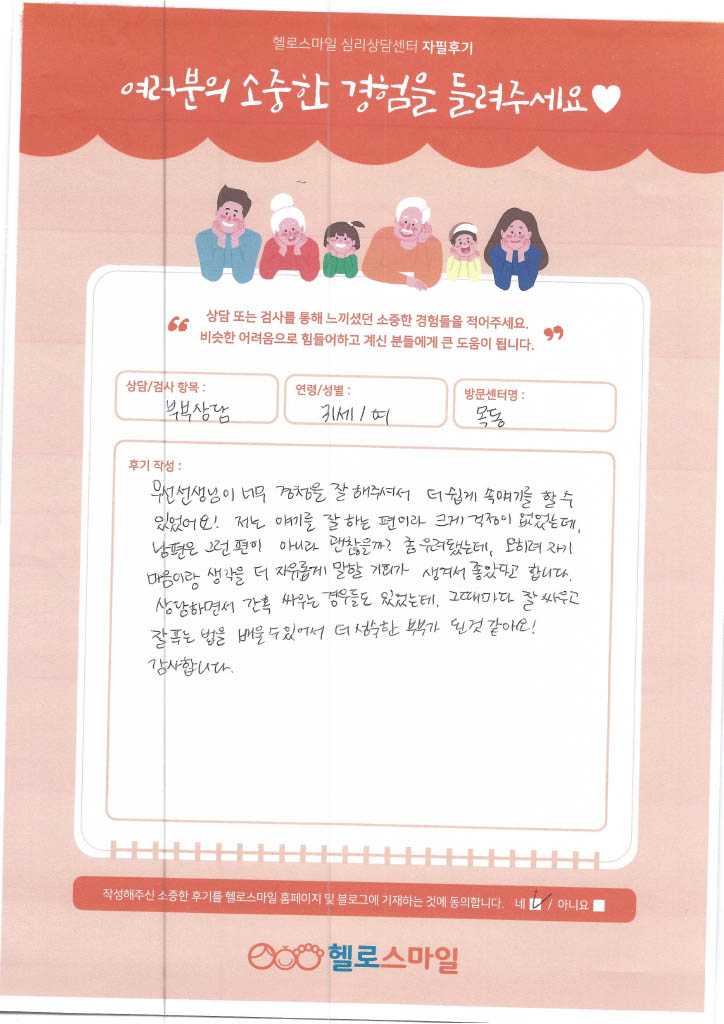 헬로스마일 심리상담센터 자필후기
여러분의 소중한 경험을 들려주세요♥
“ 상담 또는 검사를 통해 느끼셨던 소중한 경험들을 적어주세요.
비슷한 어려움으로 힘들어하고 계신 분들에게 큰 도움이 됩니다. ”
상담/검사 항목 :
부부상담
연령/성별 :
세 / 여
방문센터명 :
목동
후기 작성 :
우선 선생님이 너무 경청을 잘 해주셔서 더 쉽게 속얘기를 할 수
있었어요! 저는 얘기를 잘 하는 편이라 크게 걱정이 없었는데,
남편은 그런 편이 아니라 괜찮을까? 좀 우려됐는데, 오히려 자기
마음이랑 생각을 더 자유롭게 말할 기회가 생겨서 좋았다고 합니다.
상담하면서 간혹 싸우는 경우들도 있었는데, 그때마다 잘 싸우고
잘 푸는 법을 배울 수 있어서 더 성숙한 부부가 된 것 같아요!
감사합니다.
작성해주신 소중한 후기를 헬로스마일 홈페이지 및 블로그에 기재하는 것에 동의합니다. 네 / 아니요
헬로스마일